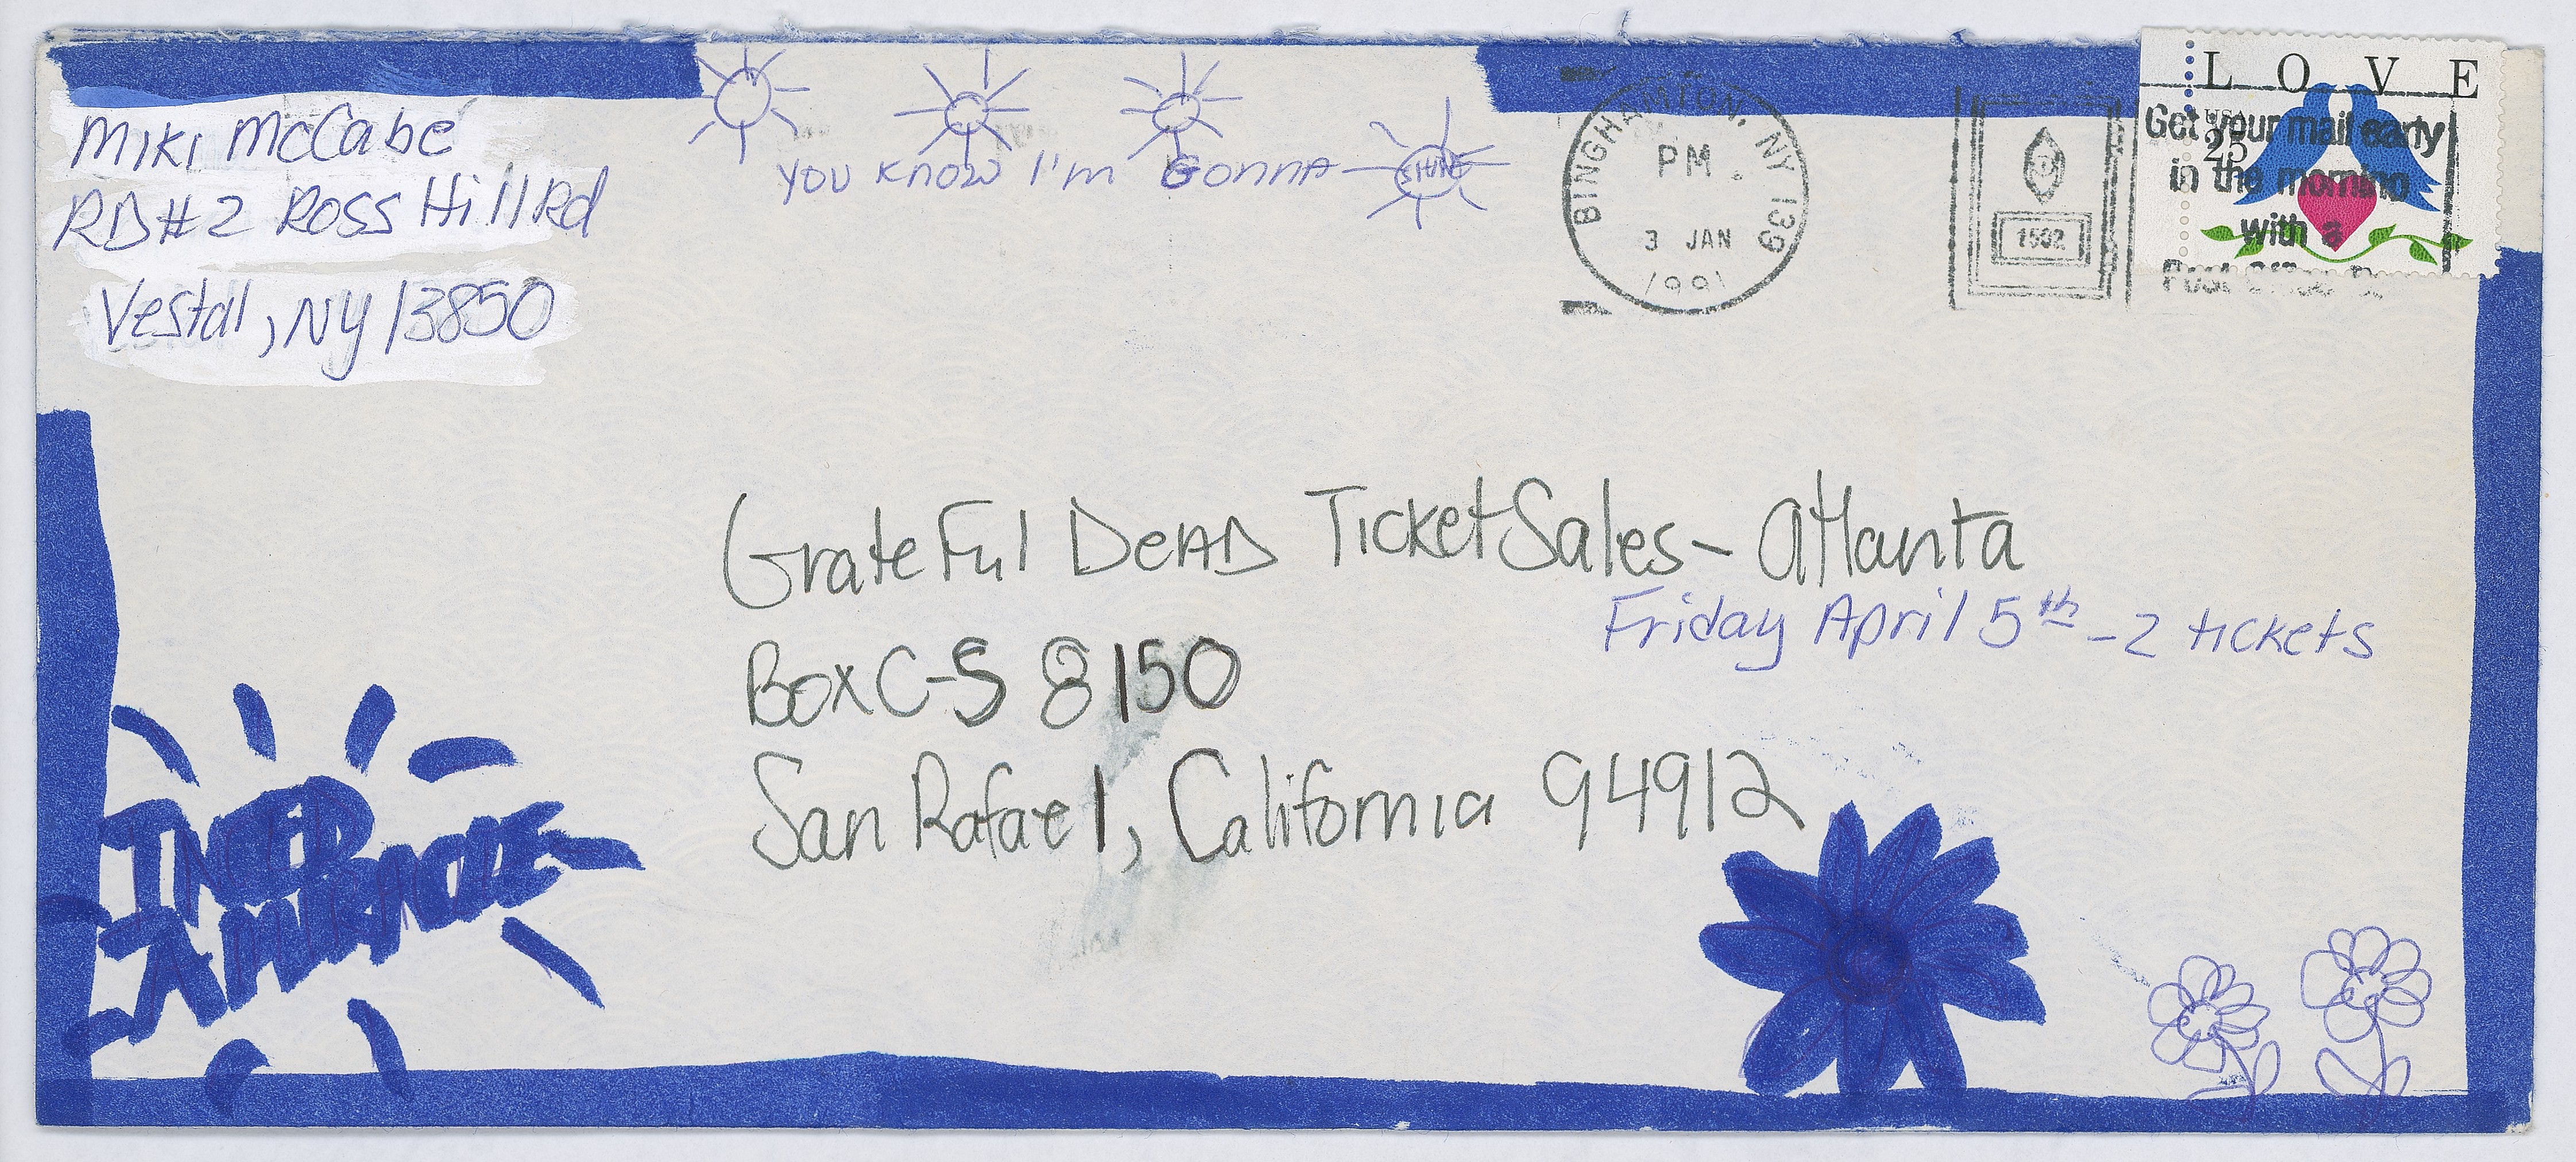 Miki McCabe
RD#2 Ross Hill Rd
Vestal, NY 13850
YOU KNOW I'm GONNA SHINE
BINGHAMTON, NY 139
PM
3 JAN
1991
L O V E
USA
25
Get your mail early
in the morning
with a
Post Office
Grateful DeAD Ticket Sales - Atlanta
Friday April 5th - 2 tickets
Box C-S 8150
San Rafael, California 94912
I NEED
A MIRACLE